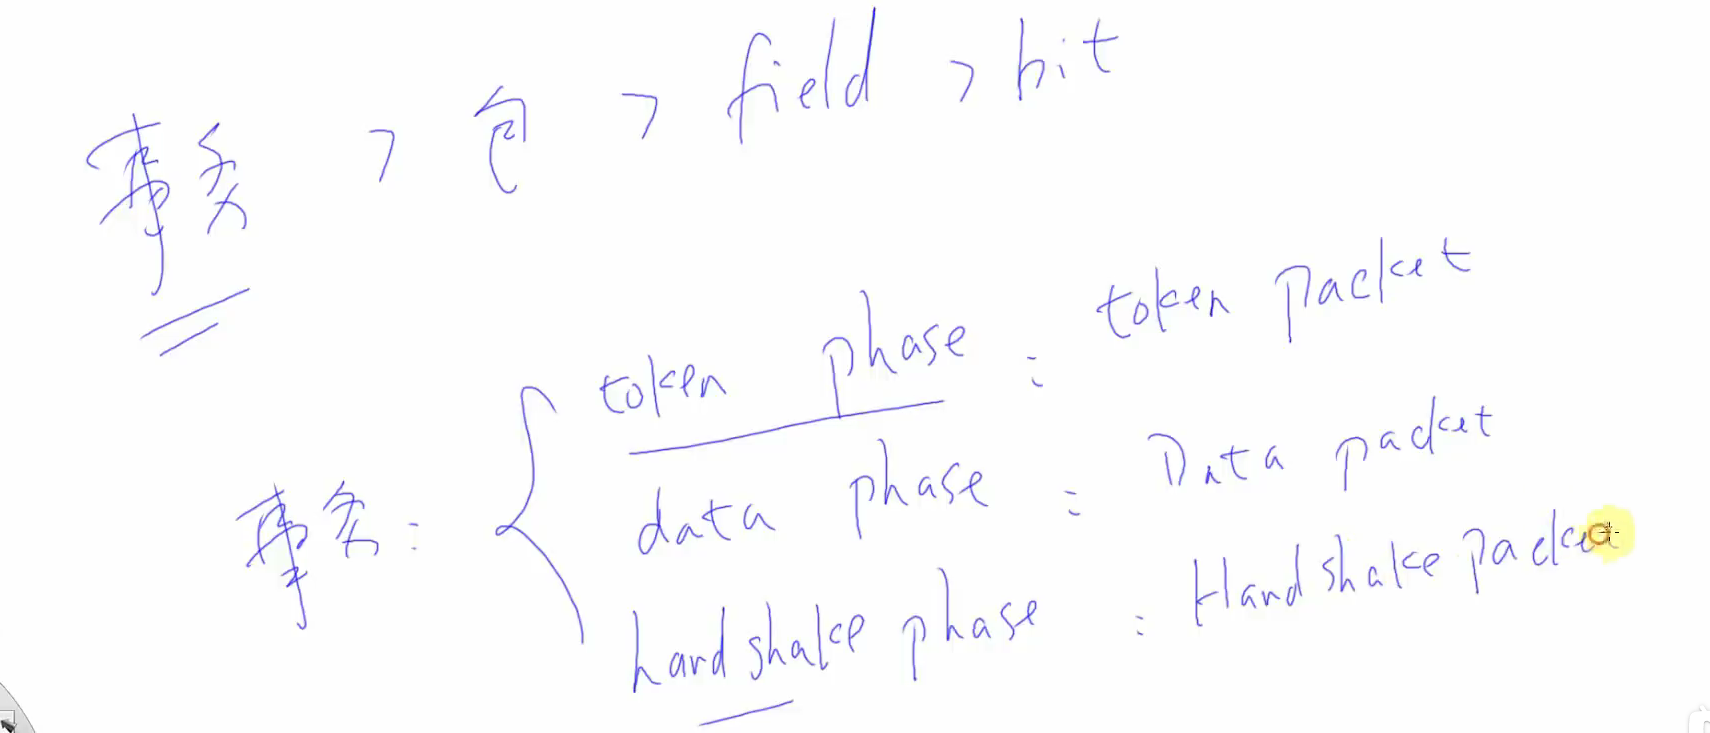 事务 > 包 > field > bit
token phase : token packet
事务: data phase : Data packet
hand shake phase : Hand shake packe